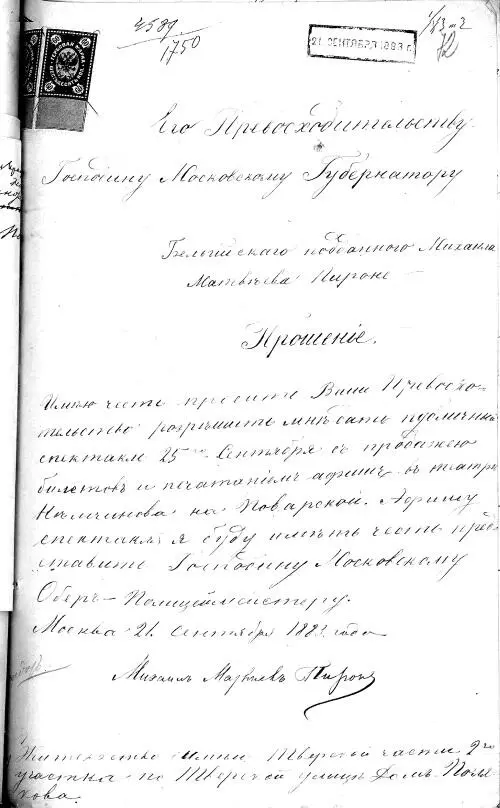 4589
1750
21 СЕНТЯБРЯ 1883 г.
Его Превосходительству
Господину Московскому Губернатору
Бельгійскаго подданного Михаила
Матвѣева Пироне
Прошеніе.
Имѣю честь просить Ваше Превосхо-
дительство разрѣшить мнѣ дать публичный
спектакль 25 Сентября съ продажею
билетовъ и печатаніемъ афишъ въ театрѣ
Нѣмчинова на Поварской. Афишу
спектакля я буду имѣть честь пред-
ставить Господину Московскому
Оберъ-Полицеймейстеру.
Москва 21 Сентября 1883 года
Михаилъ Матвѣевъ Пироне
Жительство имѣю Тверской части 2го
участка по Тверской улицѣ домъ Поля-
кова.